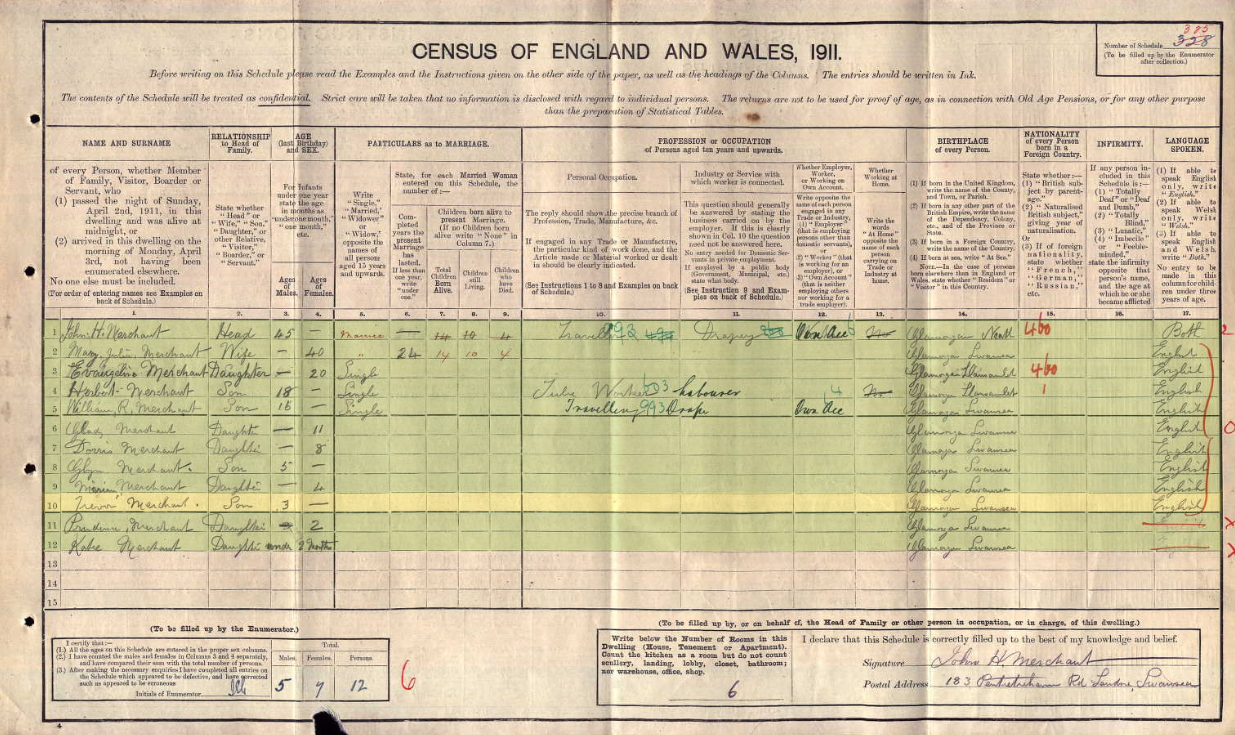 385
Number of Schedule 328
(To be filled up by the Enumerator
after collection.)
CENSUS OF ENGLAND AND WALES, 1911.
Before writing on this Schedule please read the Examples and the Instructions given on the other side of the paper, as well as the headings of the Columns. The entries should be written in Ink.
The contents of the Schedule will be treated as confidential. Strict care will be taken that no information is disclosed with regard to individual persons. The returns are not to be used for proof of age, as in connection with Old Age Pensions, or for any other purpose
than the preparation of Statistical Tables.
NAME AND SURNAME
of every Person, whether Member
of Family, Visitor, Boarder or
Servant, who
(1) passed the night of Sunday,
April 2nd, 1911, in this
dwelling and was alive at
midnight, or
(2) arrived in this dwelling on the
morning of Monday, April
3rd, not having been
enumerated elsewhere.
No one else must be included.
(For order of entering names see Examples on
back of Schedule.)
RELATIONSHIP
to Head of
Family.
State whether
"Head," or
"Wife," "Son,"
"Daughter," or
other Relative,
"Visitor,"
"Boarder," or
"Servant."
AGE
(last Birthday)
and SEX.
For Infants
under one year
state the age
in months as
"under one month,"
"one month,"
etc.
Ages
of
Males.
Ages
of
Females.
PARTICULARS as to MARRIAGE.
Write
"Single,"
"Married,"
"Widower"
or
"Widow,"
opposite the
names of
all persons
aged 15 years
and upwards.
State, for each Married Woman
entered on this Schedule, the
number of :—
Com-
pleted
years the
present
Marriage
has
lasted.
If less than
one year
write
"under
one."
Children born alive to
present Marriage.
(If no children born
alive write "None" in
Column 7.)
Total
Children
Born
Alive.
Children
still
Living.
Children
who
have
Died.
PROFESSION or OCCUPATION
of Persons aged ten years and upwards.
Personal Occupation.
The reply should show the precise branch of
Profession, Trade, Manufacture, &c.
If engaged in any Trade or Manufacture,
the particular kind of work done, and the
Article made or Material worked or dealt
in should be clearly indicated.
(See Instructions 1 to 8 and Examples on back
of Schedule.)
Industry or Service with
which worker is connected.
This question should generally
be answered by stating the
business carried on by the
employer. If this is clearly
shown in Col. 10 the question
need not be answered here.
No entry needed for Domestic Ser-
vants in private employment.
If employed by a public body
(Government, Municipal, etc.)
state what body.
(See Instruction 9 and Exam-
ples on back of Schedule.)
Whether Employer,
Worker, or
Working on
Own Account.
Write opposite the
name of each person
engaged in any
Trade or Industry,
(1) "Employer"
(that is employing
persons other than
domestic servants),
or
(2) "Worker" (that
is working for an
employer), or
(3) "Own Account"
(that is neither
employing others
nor working for a
trade employer).
Whether
Working at
Home.
Write the
words
"At Home"
opposite the
name of each
person
carrying on
Trade or
Industry at
home.
BIRTHPLACE
of every person.
(1) If born in the United Kingdom,
write the name of the County,
and Town, or Parish.
(2) If born in any other part of the
British Empire, write the name
of the Dependency, Colony,
etc., and of the Province or
State.
(3) If born in a Foreign Country,
write the name of the Country.
(4) If born at sea, write "At Sea."
NOTE.—In the case of persons
born elsewhere than in England or
Wales, state whether "Resident" or
"Visitor" in this Country.
NATIONALITY
of every Person
born in a
Foreign Country.
State whether :—
(1) "British sub-
ject by parent-
age."
(2) "Naturalised
British subject,"
giving year of
naturalisation.
Or
(3) If of foreign
nationality,
state whether
"French,"
"German,"
"Russian,"
etc.
INFIRMITY.
If any person in-
cluded in this
Schedule is :—
(1) "Totally
Deaf" or "Deaf
and Dumb,"
(2) "Totally
Blind,"
(3) "Lunatic,"
(4) "Imbecile"
or "Feeble-
minded,"
state the infirmity
opposite that
person's name,
and the age at
which he or she
became afflicted
LANGUAGE
SPOKEN.
(1) If able to
speak English
only, write
"English."
(2) If able to
speak Welsh
only, write
"Welsh."
(3) If able to
speak English
and Welsh
write "Both."
No entry to be
made in this
column for child-
ren under three
years of age.
1. 2. 3. 4. 5. 6. 7. 8. 9. 10. 11. 12. 13. 14. 15. 16. 17.
1 John H. Merchant Head 45 — Married — 14 10 4 Traveller 993 Drapery Own Acc No Glamorgan Neath 460 Both
2 Mary Julia Merchant Wife — 40 " 24 14 10 4 Glamorgan Swansea English
3 Evangeline Merchant Daughter — 20 Single Glamorgan Llansamlet 460 English
4 Herbert Merchant Son 18 — Single Tube Worker 603 Labourer 4 No Glamorgan Llansamlet English
5 William R. Merchant Son 16 — Single Travelling 993 Draper Own Acc Glamorgan Swansea English
6 Gladys Merchant Daughter — 11 Glamorgan Swansea English
7 Dorris Merchant Daughter — 8 Glamorgan Swansea English
8 Glyn Merchant Son 5 — Glamorgan Swansea English
9 Merchant Daughter — 4 Glamorgan Swansea English
10 Trevor Merchant Son 3 — Glamorgan Swansea English
11 Prudence Merchant Daughter — 2 Glamorgan Swansea
12 Katie Merchant Daughter under 2 months Glamorgan Swansea
13
14
15
(To be filled up by the Enumerator.)
I certify that :—
(1.) All the ages on this Schedule are entered in the proper sex columns.
(2.) I have counted the males and females in Columns 3 and 4 separately,
and have compared their sum with the total number of persons.
(3.) After making the necessary enquiries I have completed all entries on
the Schedule which appeared to be defective, and have corrected
such as appeared to be erroneous.
Initials of Enumerator
Total.
Males. Females. Persons.
5 7 12
6
(To be filled up by, or on behalf of, the Head of Family or other person in occupation, or in charge, of this dwelling.)
Write below the Number of Rooms in this
Dwelling (House, Tenement or Apartment).
Count the kitchen as a room but do not count
scullery, landing, lobby, closet, bathroom;
nor warehouse, office, shop.
6
I declare that this Schedule is correctly filled up to the best of my knowledge and belief.
Signature John H Merchant
Postal Address 183 Pentretreharne Rd Landore, Swansea